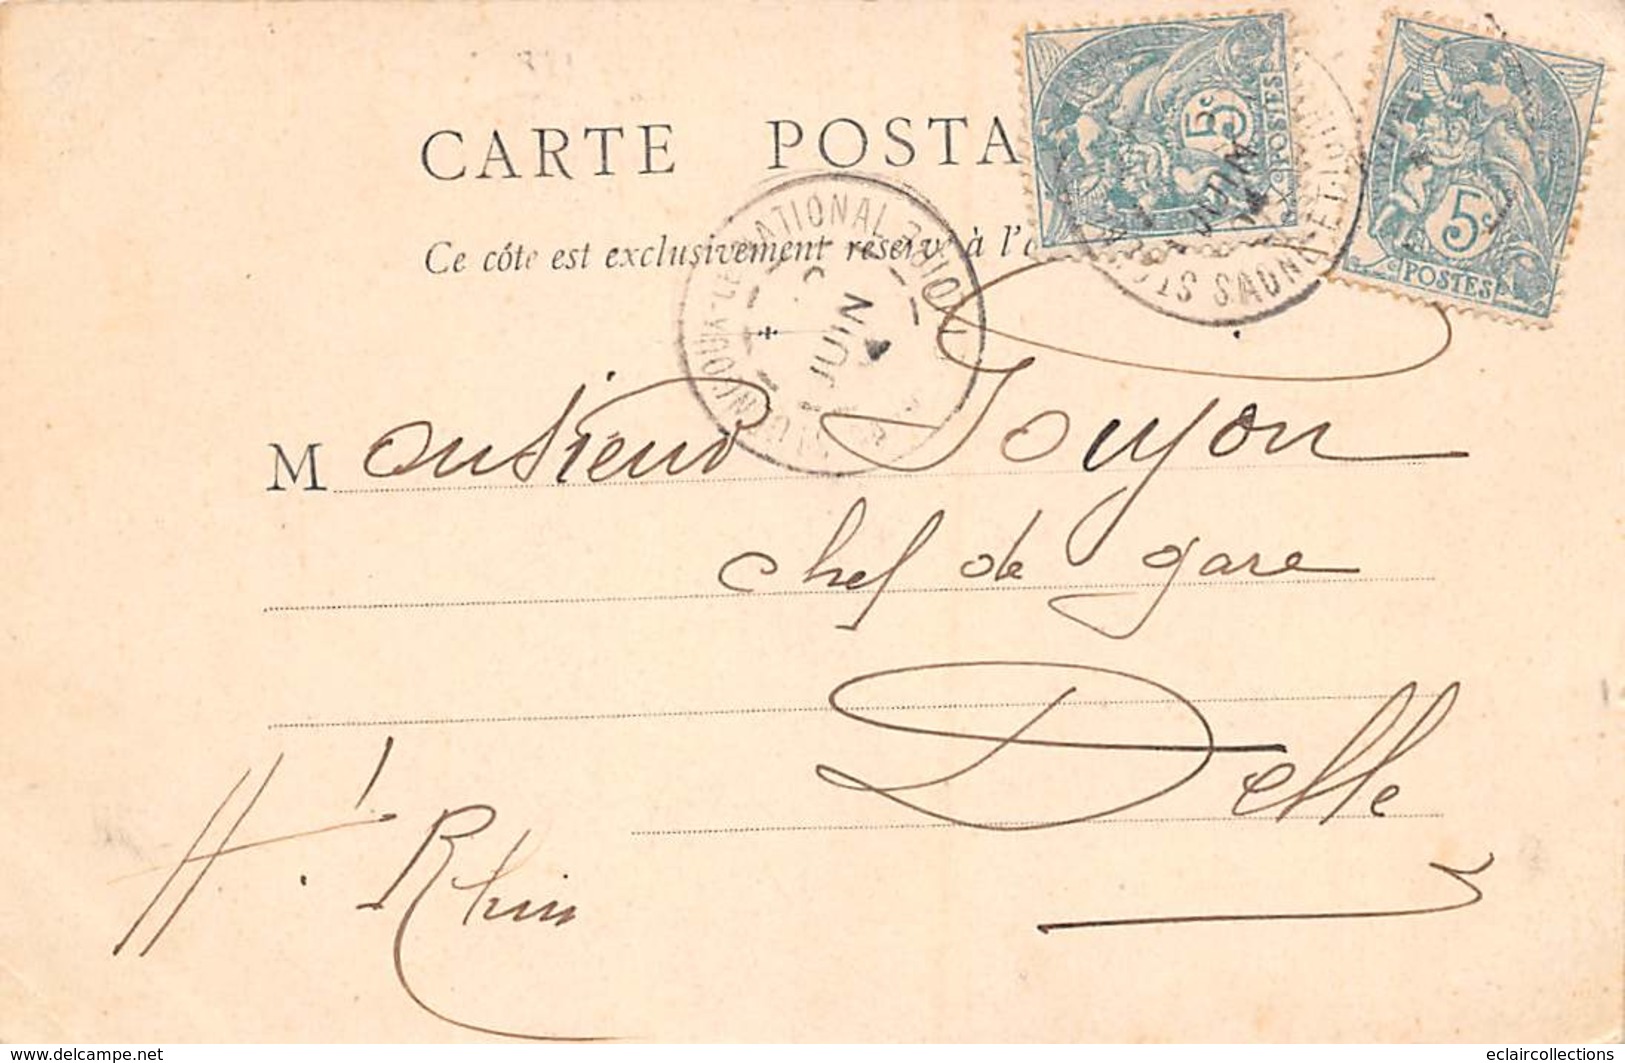 CARTE POSTA
Ce côté est exclusivement réservé à l'a
5c
POSTES
5c
POSTES
JUIN
JUIN
Monsieur Joujon
chef de gare
Delle
Ht Rhin
www.delcampe.net
eclaircollections